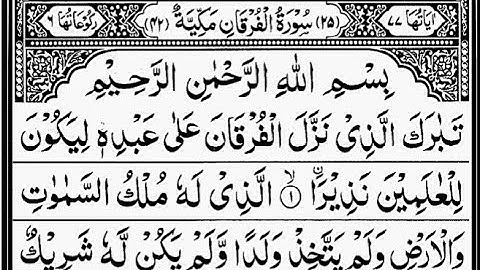 اٰيَاتُهَا ٧٧ (٢٥) سُوْرَةُ الْفُرْقَانِ مَكِّيَّةٌ (٤٢) رُكُوْعَاتُهَا ٦
بِسْمِ اللّٰهِ الرَّحْمٰنِ الرَّحِيْمِ
تَبٰرَكَ الَّذِىْ نَزَّلَ الْفُرْقَانَ عَلٰى عَبْدِهٖ لِيَكُوْنَ
لِلْعٰلَمِيْنَ نَذِيْرًا ۙ﴿۱﴾ الَّذِىْ لَهٗ مُلْكُ السَّمٰوٰتِ
وَالْاَرْضِ وَلَمْ يَتَّخِذْ وَلَدًا وَّلَمْ يَكُنْ لَّهٗ شَرِيْكٌ